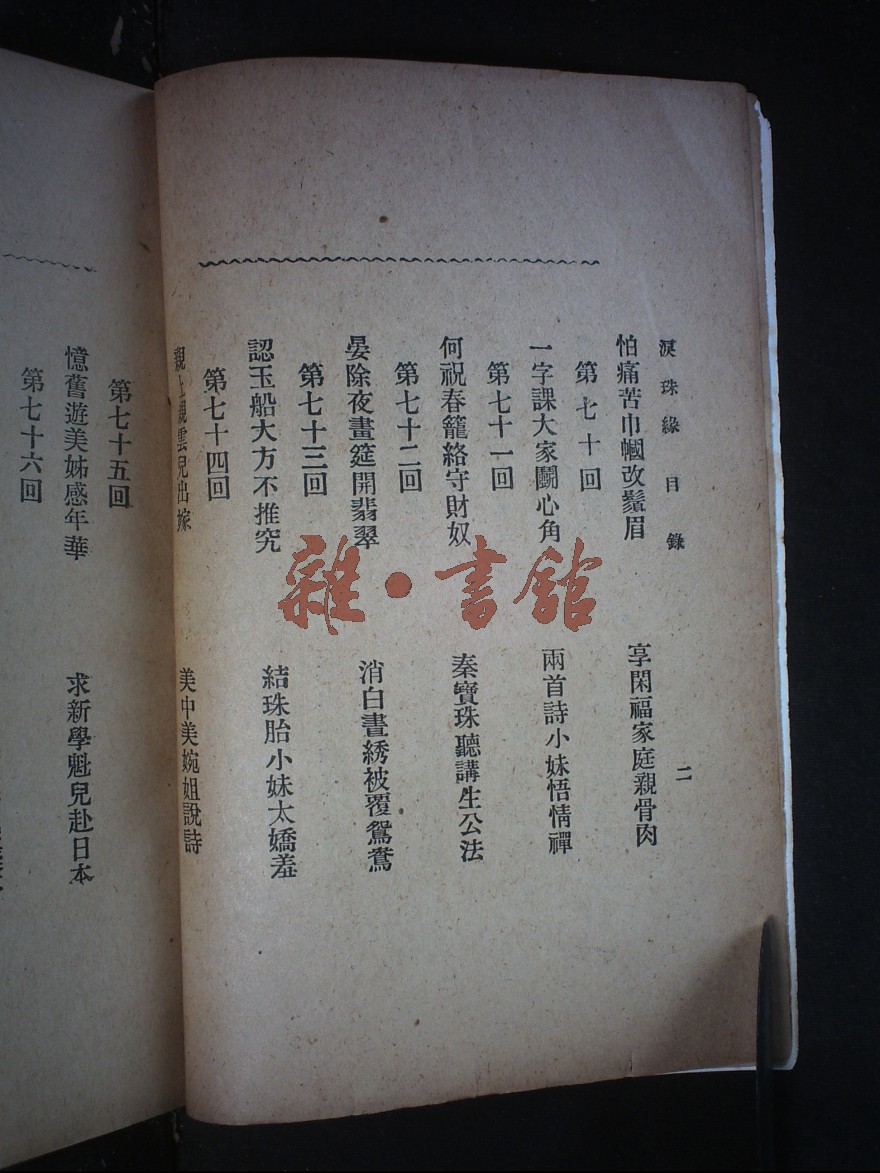 淚珠緣 目錄 二
怕痛苦巾幗改鬚眉 享閑福家庭親骨肉
第七十回
一字課大家鬭心角 兩首詩小妹悟情禪
第七十一回
何祝春籠絡守財奴 秦寶珠聽講生公法
第七十二回
晏除夜畫筵開翡翠 消白晝綉被覆鴛鴦
第七十三回
認玉船大方不推究 結珠胎小妹太嬌羞
第七十四回
親上親雲兒出嫁 美中美婉姐說詩
第七十五回
憶舊遊美姊感年華 求新學魁兒赴日本
第七十六回
雜·書館